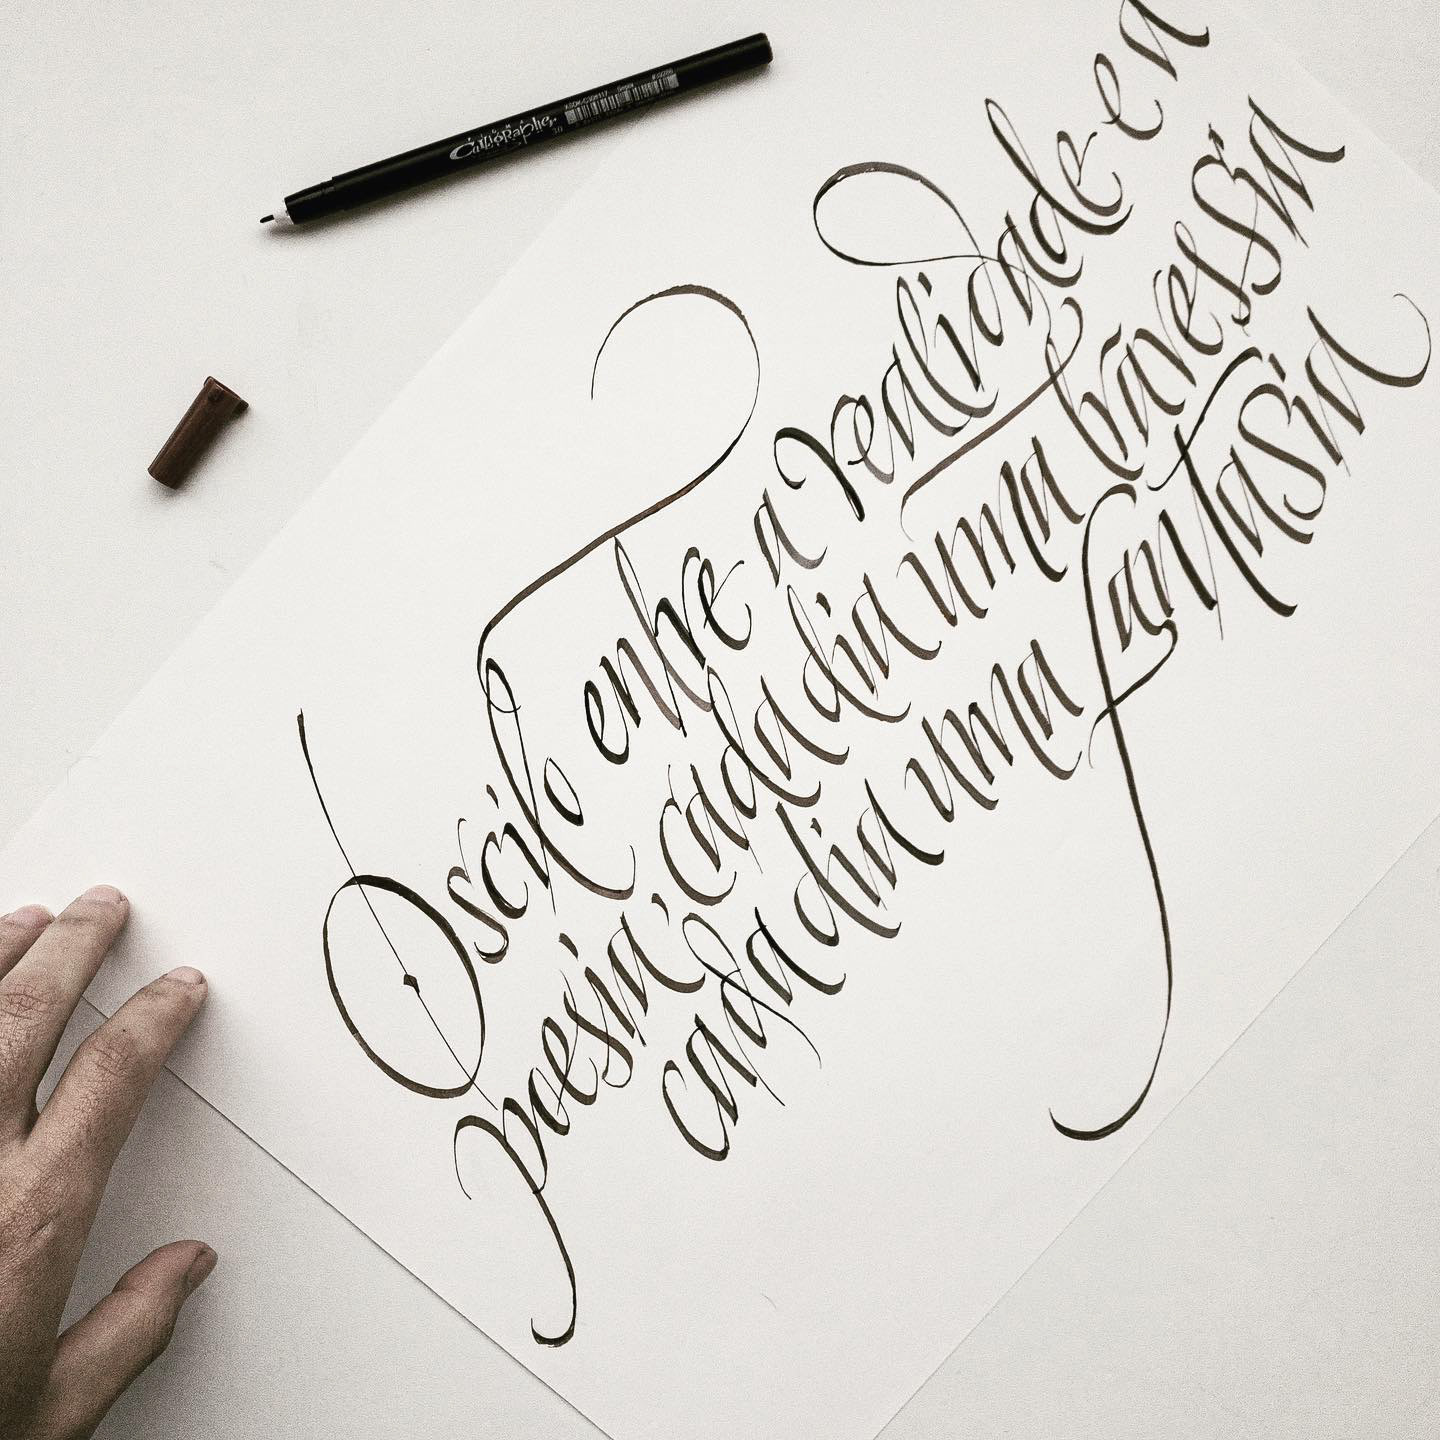 Calligrapher 30
Oscilo entre a realidade e a
poesia, cada dia uma travessia
cada dia uma fantasia